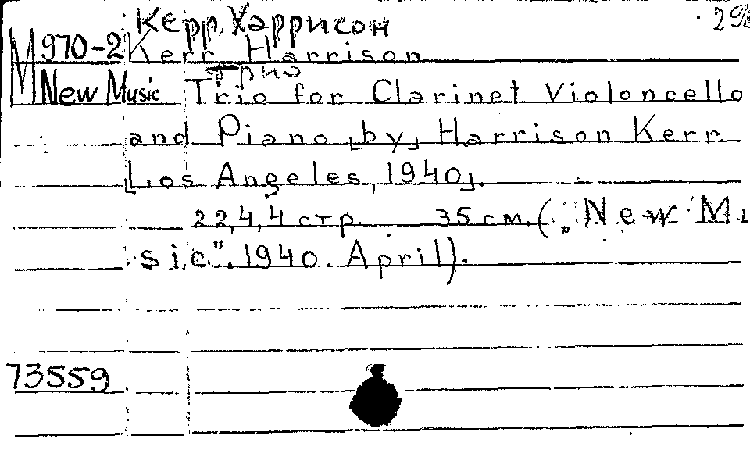 Керр, Хэррисон
М 970-2 Kerr Harrison
трио
New Music Trio for Clarinet Violoncello
and Piano [by] Harrison Kerr
[Los Angeles, 1940].
22,4,4 стр. 35 см. („New Mu
sic". 1940. April).
73559